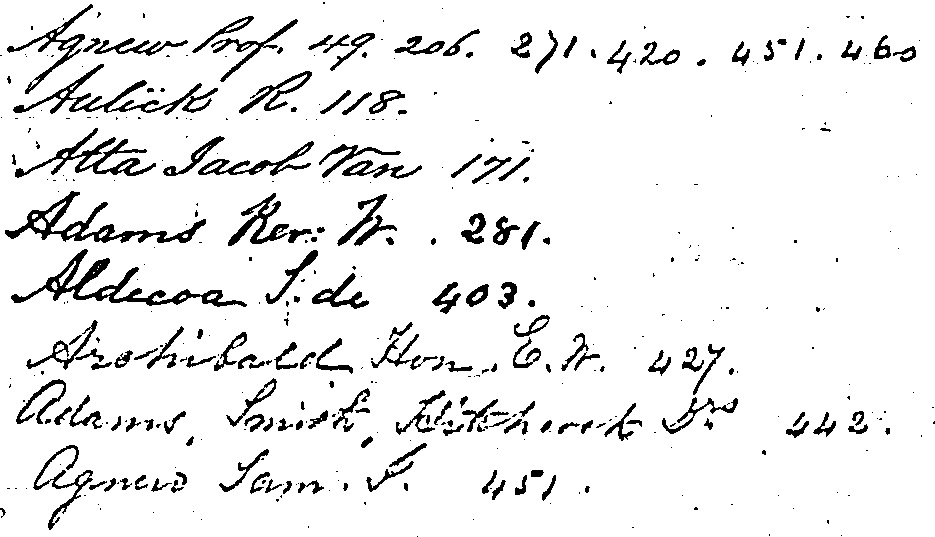 Agnew Prof. 49. 206. 271. 420. 451. 460
Aulick R. 118.
Alta Jacob Van 171.
Adams Rev: W. 281.
Aldecoa S. de 403.
Archibald Hon. E. W. 427.
Adams, Smith, Hitchcock Drs 442.
Agnew Sam. S. 451.